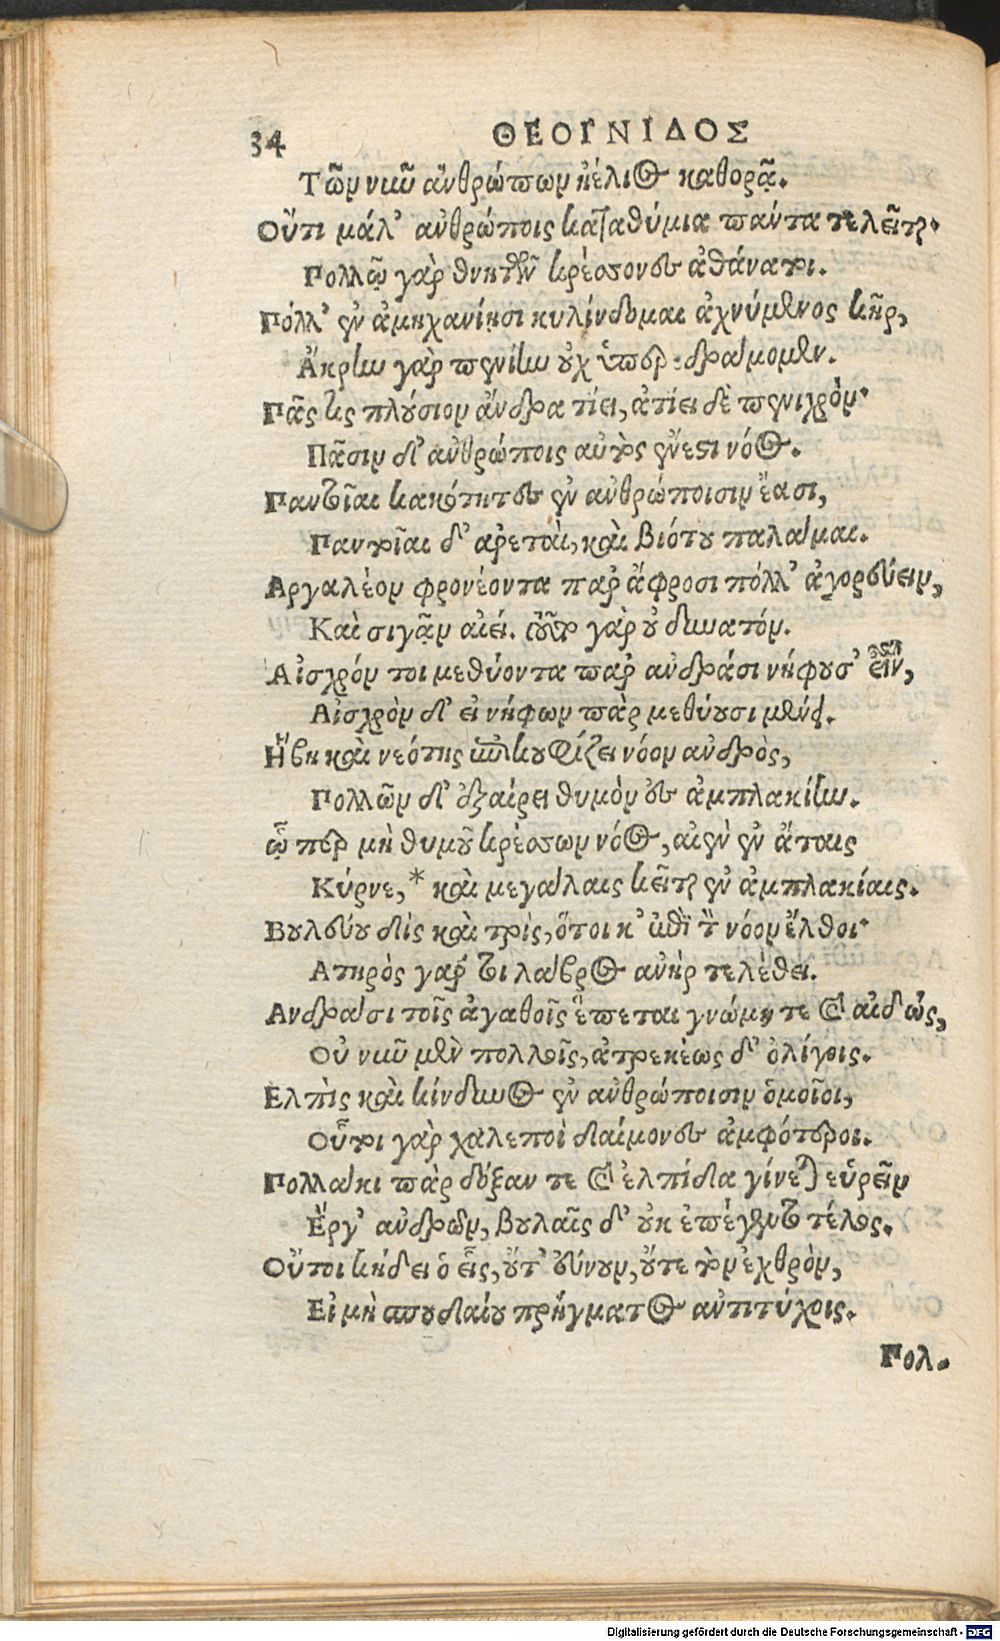 34 ΘΕΟΓΝΙΔΟΣ
Τῶν νῦν ἀνθρώπων ἠέλιος καθορᾷ.
Οὔτι μάλ' ἀνθρώποις καταθύμια πάντα τελεῖται·
Πολλῷ γὰρ θνητῶν κρέσσονες ἀθάνατοι.
Πόλλ' ἐν ἀμηχανίησι κυλίνδομαι ἀχνύμενος κῆρ,
Ἄκρην γὰρ πενίην οὐχ ὑπερεδράμομεν.
Πᾶς τις πλούσιον ἄνδρα τίει, ἀτίει δὲ πενιχρόν·
Πᾶσιν δ' ἀνθρώποις αὐτὸς ἔνεστι νόος.
Παντοῖαι κακότητες ἐν ἀνθρώποισιν ἔασι,
Παντοῖαι δ' ἀρεταὶ, καὶ βιότου παλάμαι.
Αργαλέον φρονέοντα παρ' ἄφροσι πόλλ' ἀγορεύειν,
Καὶ σιγᾷν αἰεί. τοῦτο γὰρ οὐ δυνατόν.
Αἰσχρόν τοι μεθύοντα παρ' ἀνδράσι νήφουσ' εἶναι,
Αἰσχρὸν δ' εἰ νήφων πὰρ μεθύουσι μένῃ.
Ἥβη καὶ νεότης ἐπικουφίζει νόον ἀνδρὸς,
Πολλῶν δ' ἐξαίρει θυμὸν ἐς ἀμπλακίην.
ᾧ περ μὴ θυμοῦ κρέσσων νόος, αἰὲν ἐν ἄταις
Κύρνε,* καὶ μεγάλαις κεῖται ἐν ἀμπλακίαις.
Βουλεύου δὶς καὶ τρὶς, ὅτοι κ' ἐπὶ τὸν νόον ἔλθοι·
Ατηρὸς γάρ τοι λάβρος ἀνὴρ τελέθει.
Ανδράσι τοῖς ἀγαθοῖς ἕπεται γνώμη τε καὶ αἰδώς,
Οἳ νῦν μὲν πολλοῖς, ἀτρεκέως δ' ὀλίγοις.
Ελπὶς καὶ κίνδυνος ἐν ἀνθρώποισιν ὁμοῖοι,
Οὗτοι γὰρ χαλεποὶ δαίμονες ἀμφότεροι.
Πολλάκι πὰρ δόξαν τε καὶ ἐλπίδα γίνεται εὑρεῖν
Ἔργ' ἀνδρῶν, βουλαῖς δ' οὐκ ἐπέγεντο τέλος.
Οὔτοι κήδει ὁ εἷς, οὔτ' εὔνουν, οὔτε τὸν ἐχθρὸν,
Εἰ μὴ σπουδαίου πρήγματος ἀντιτύχοις.
Πολ-
Digitalisierung gefördert durch die Deutsche Forschungsgemeinschaft - DFG